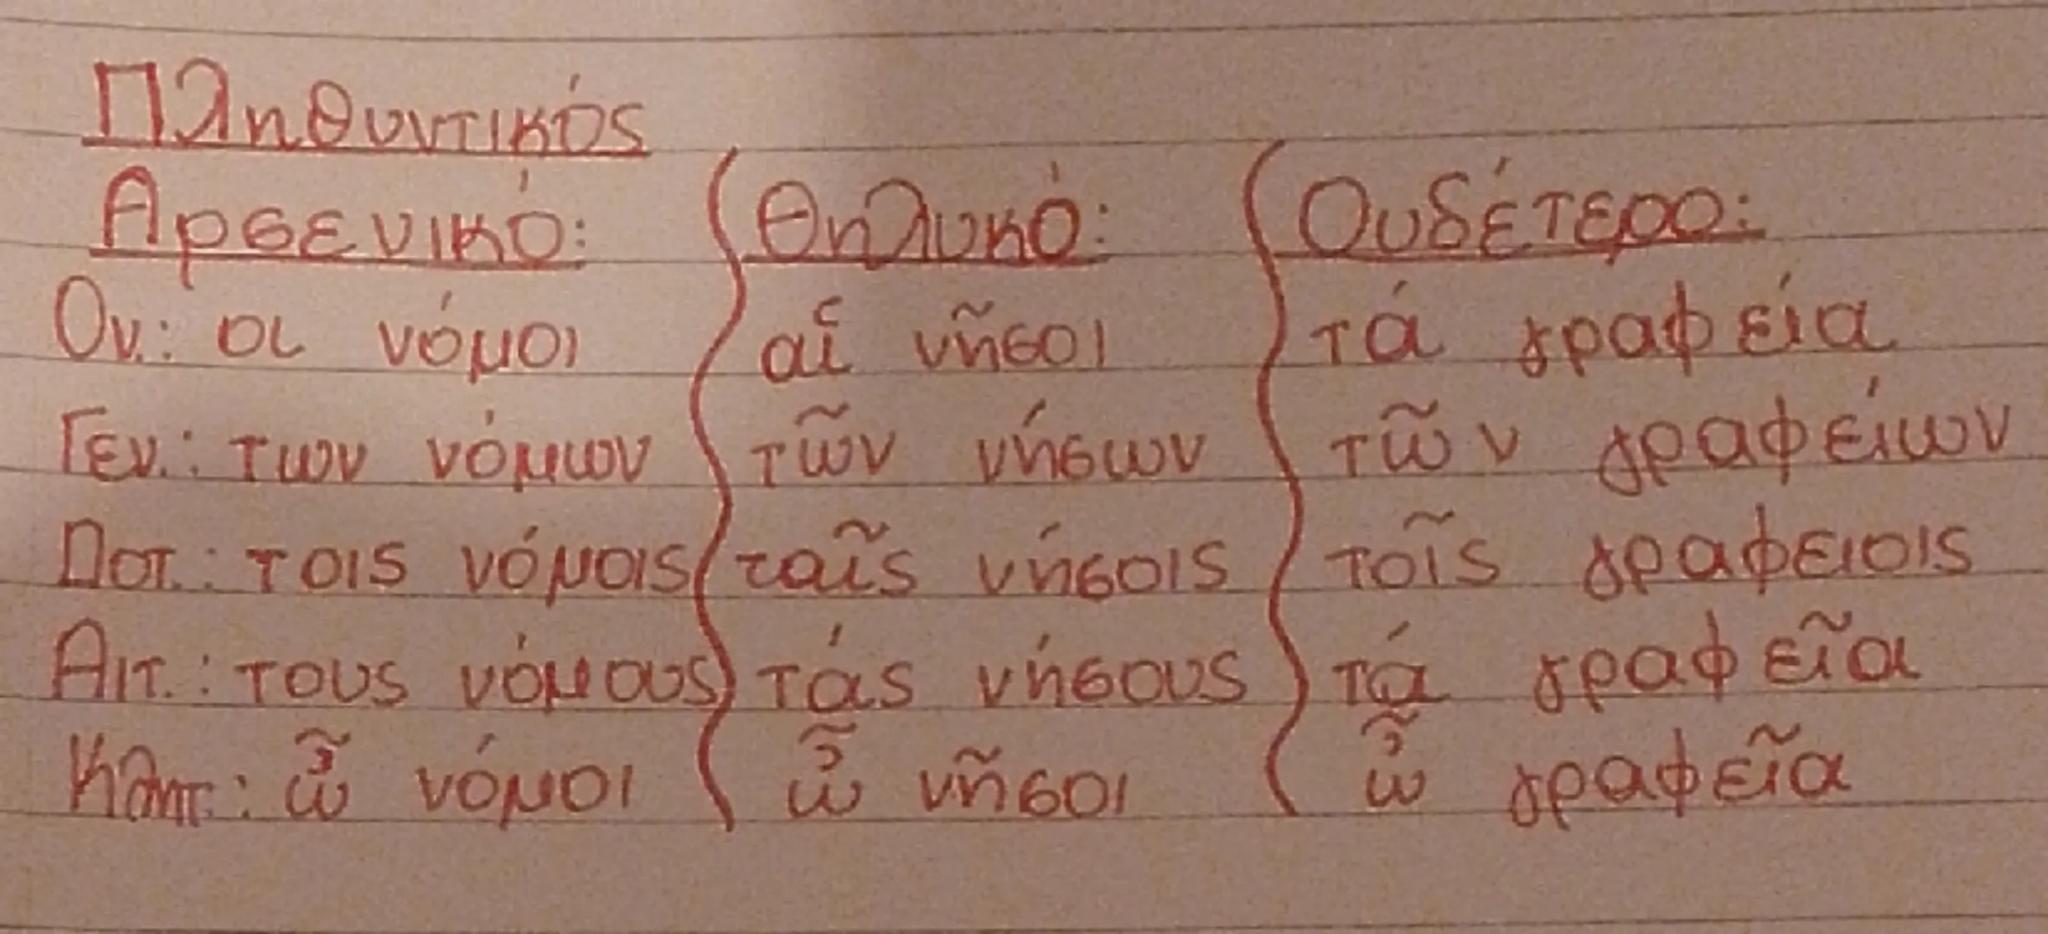 Πληθυντικός
Αρσενικό: Θηλυκό: Ουδέτερο:
Ον.: οι νόμοι αἱ νῆσοι τά γραφεία
Γεν.: των νόμων τῶν νήσων τῶν γραφείων
Δοτ.: τοις νόμοις ταῖς νήσοις τοῖς γραφειοις
Αιτ.: τους νόμους τάς νήσους τά γραφεῖα
Κλητ.: ὦ νόμοι ὦ νῆσοι ὦ γραφεῖα